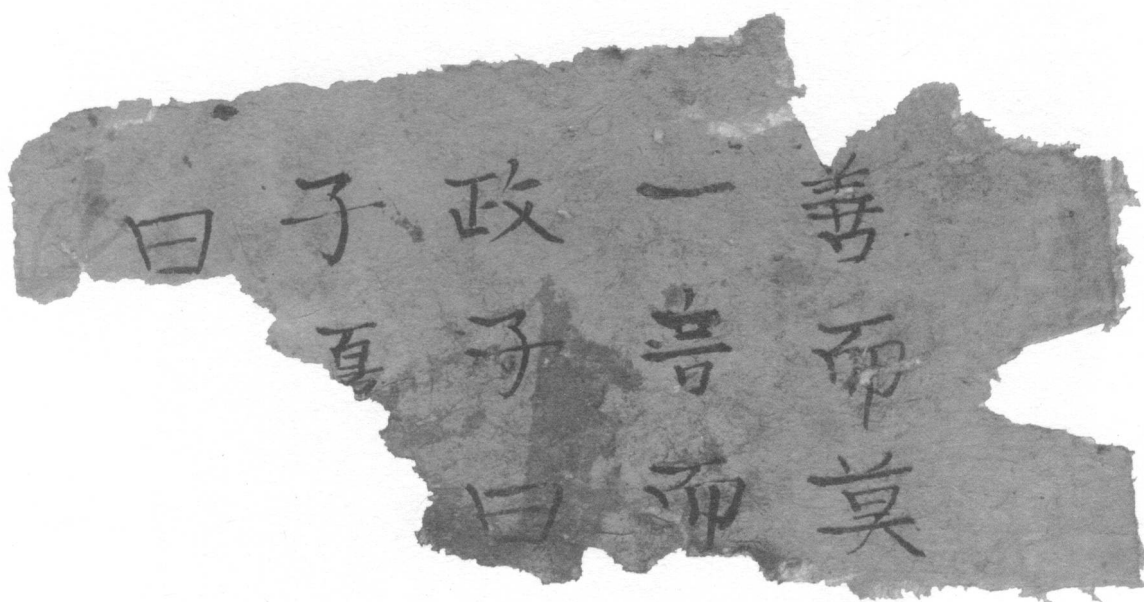 善而莫
一言而
政子曰
子夏
曰